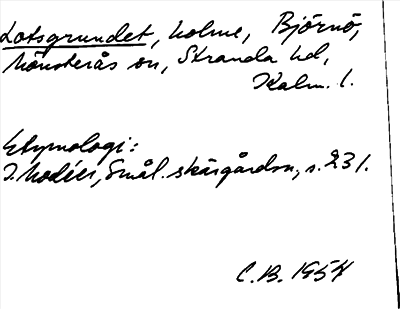 Lotsgrundet, holme, Björnö,
Mönsterås sn, Stranda hd,
Kalm. l.
Etymologi:
I. Modéer, Smål. skärgårdsn., s. 231.
C. B. 1954